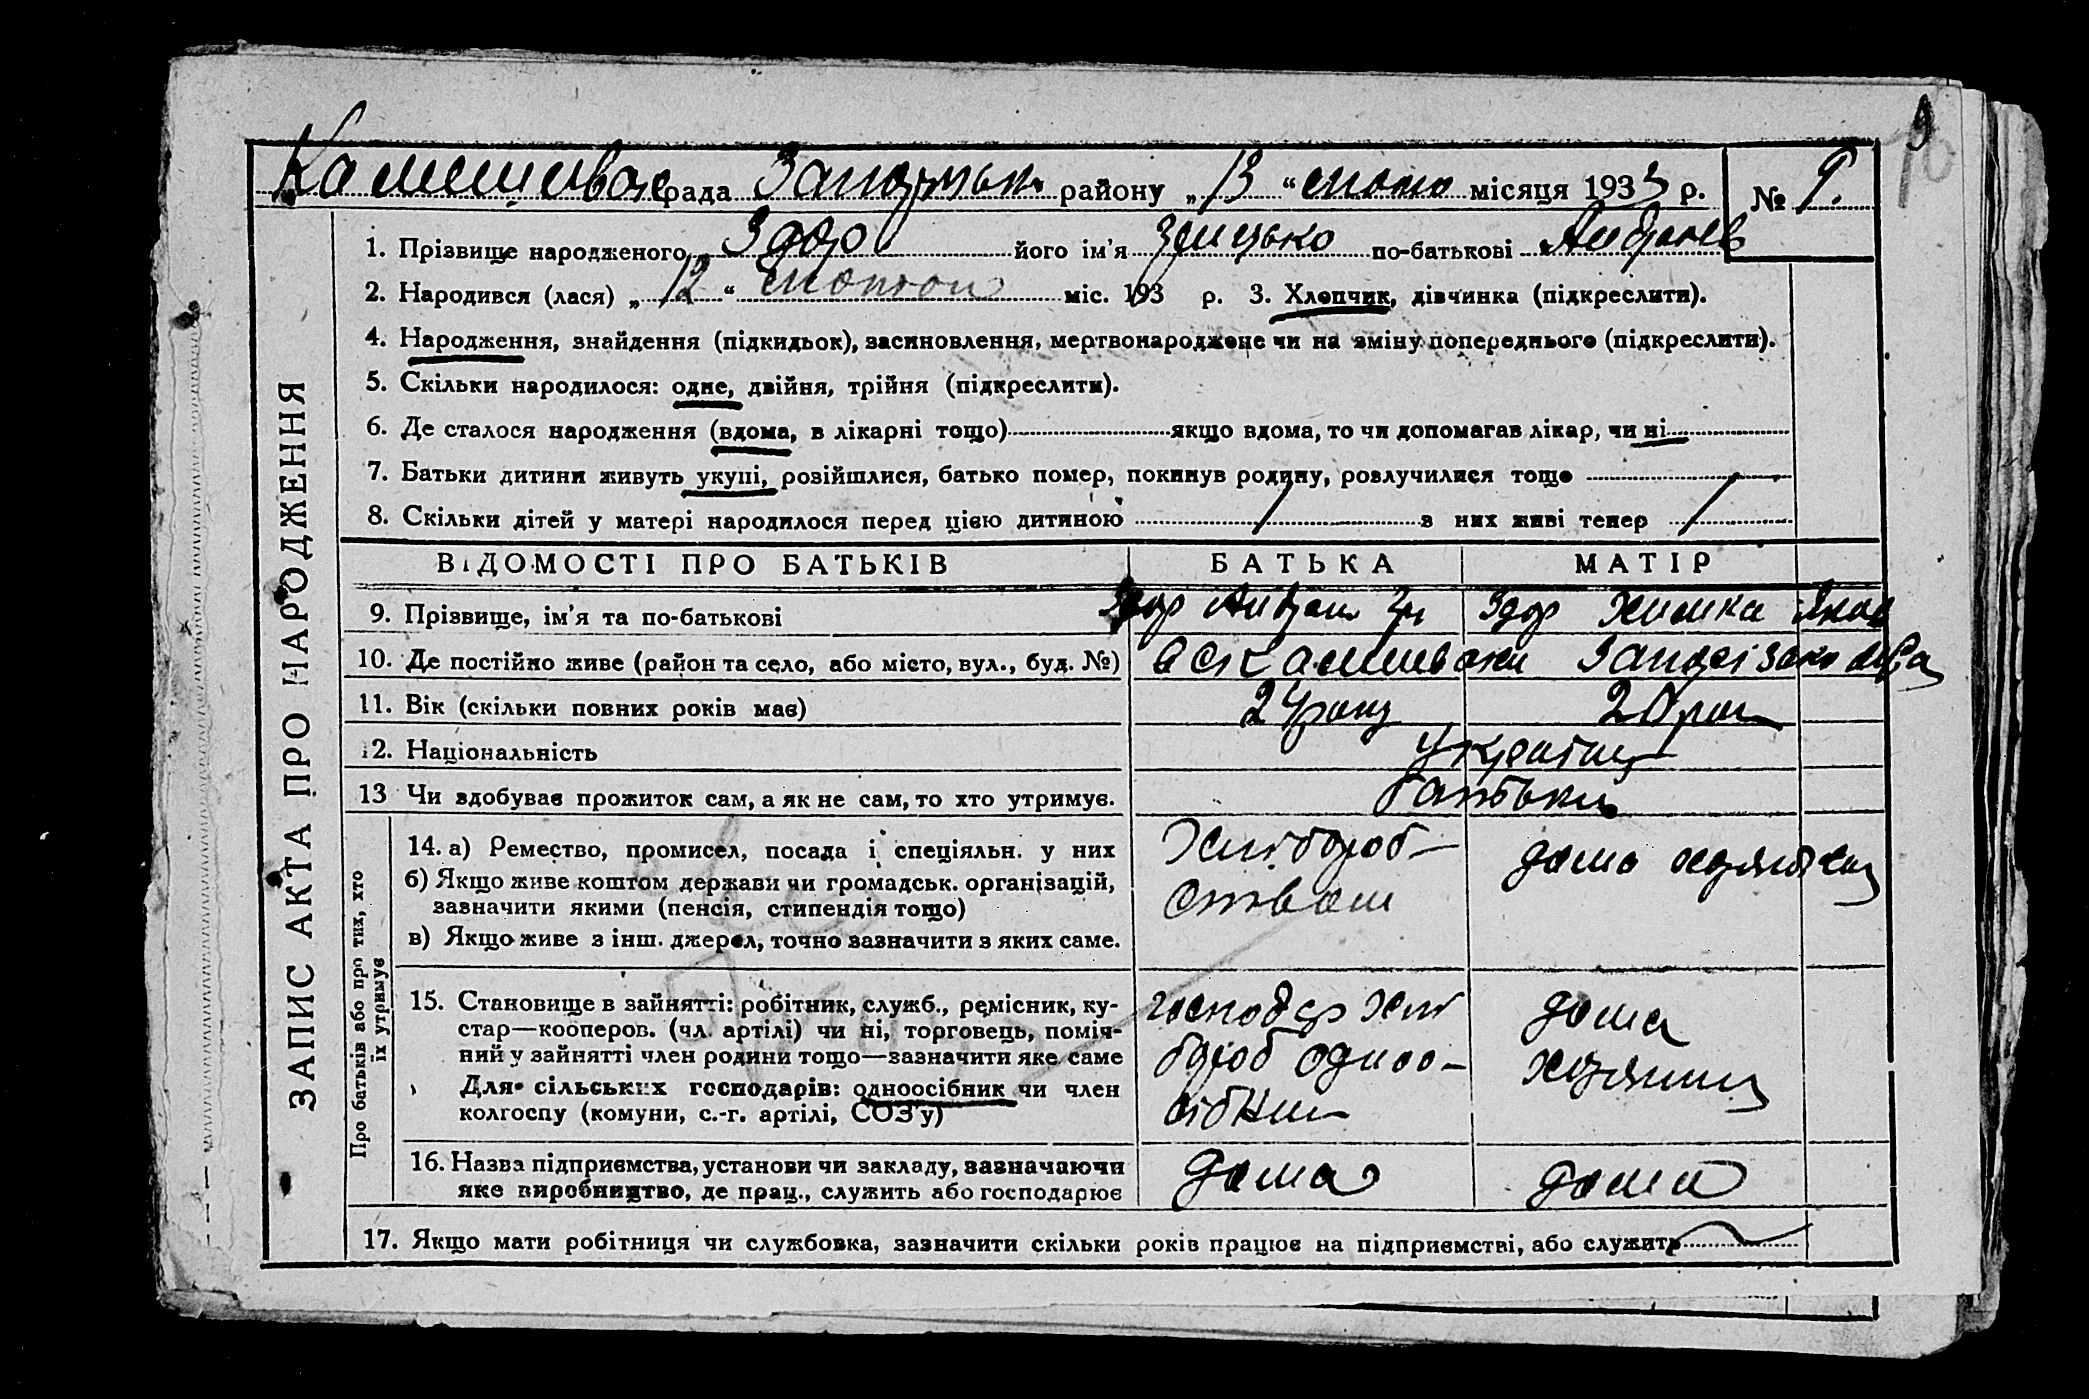 9
рада Запоріжськ району „ 13 “ лютого місяця 1933 р. № 9.
ЗАПИС АКТА ПРО НАРОДЖЕННЯ
1. Прізвище народженого Здор його ім’я Грицько по-батькові Андріев
2. Народився (лася) „ 12 “ міс. 193 р. 3. Хлопчик, дівчинка (підкреслити).
4. Народження, знайдення (підкидьок), засиновлення, мертвонароджене чи на зміну попереднього (підкреслити).
5. Скільки народилося: одне, двійня, трійня (підкреслити).
6. Де сталося народження (вдома, в лікарні тощо) якщо вдома, то чи допомагав лікар, чи ні
7. Батьки дитини живуть укупі, розійшлися, батько помер, покинув родину, розлучилися тощо
8. Скільки дітей у матері народилося перед цією дитиною / з них живі тепер /
ВІДОМОСТІ ПРО БАТЬКІВ БАТЬКА МАТІР
9. Прізвище, ім’я та по-батькові Здор Здор Химка Яков
10. Де постійно живе (район та село, або місто, вул., буд. №)
11. Вік (скільки повних років має) 24 20
12. Національність Українці
13 Чи здобуває прожиток сам, а як не сам, то хто утримує. батьки
Про батьків або про тих, хто
їх утримує
14. а) Ремество, промисел, посада і спеціяльн. у них
б) Якщо живе коштом держави чи громадськ. організацій,
зазначити якими (пенсія, стипендія тощо)
в) Якщо живе з інш. джерел, точно зазначити з яких саме.
Хлібороб-
ством
дома
15. Становище в зайнятті: робітник, служб., ремісник, ку-
стар—кооперов. (чл. артілі) чи ні, торговець, поміч-
ний у зайнятті член родини тощо—зазначити яке саме
Для сільських господарів: одноосібник чи член
колгоспу (комуни, с.-г. артілі, СОЗ’у)
господар хлі
бороб одноо-
сібник
дома
16. Назва підприємства, установи чи закладу, зазначаючи
яке виробництво, де прац., служить або господарює
дома дома
17. Якщо мати робітниця чи службовка, зазначити скільки років працює на підприємстві, або служить